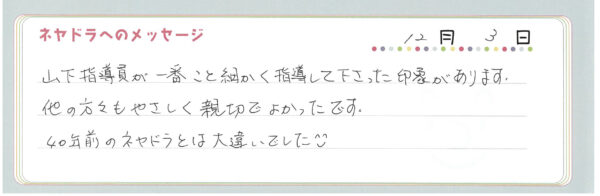 ネヤドラへのメッセージ
12月 3日
山下指導員が一番こと細かく指導して下さった印象があります.
他の方々もやさしく親切でよかったです.
40年前のネヤドラとは大違いでした